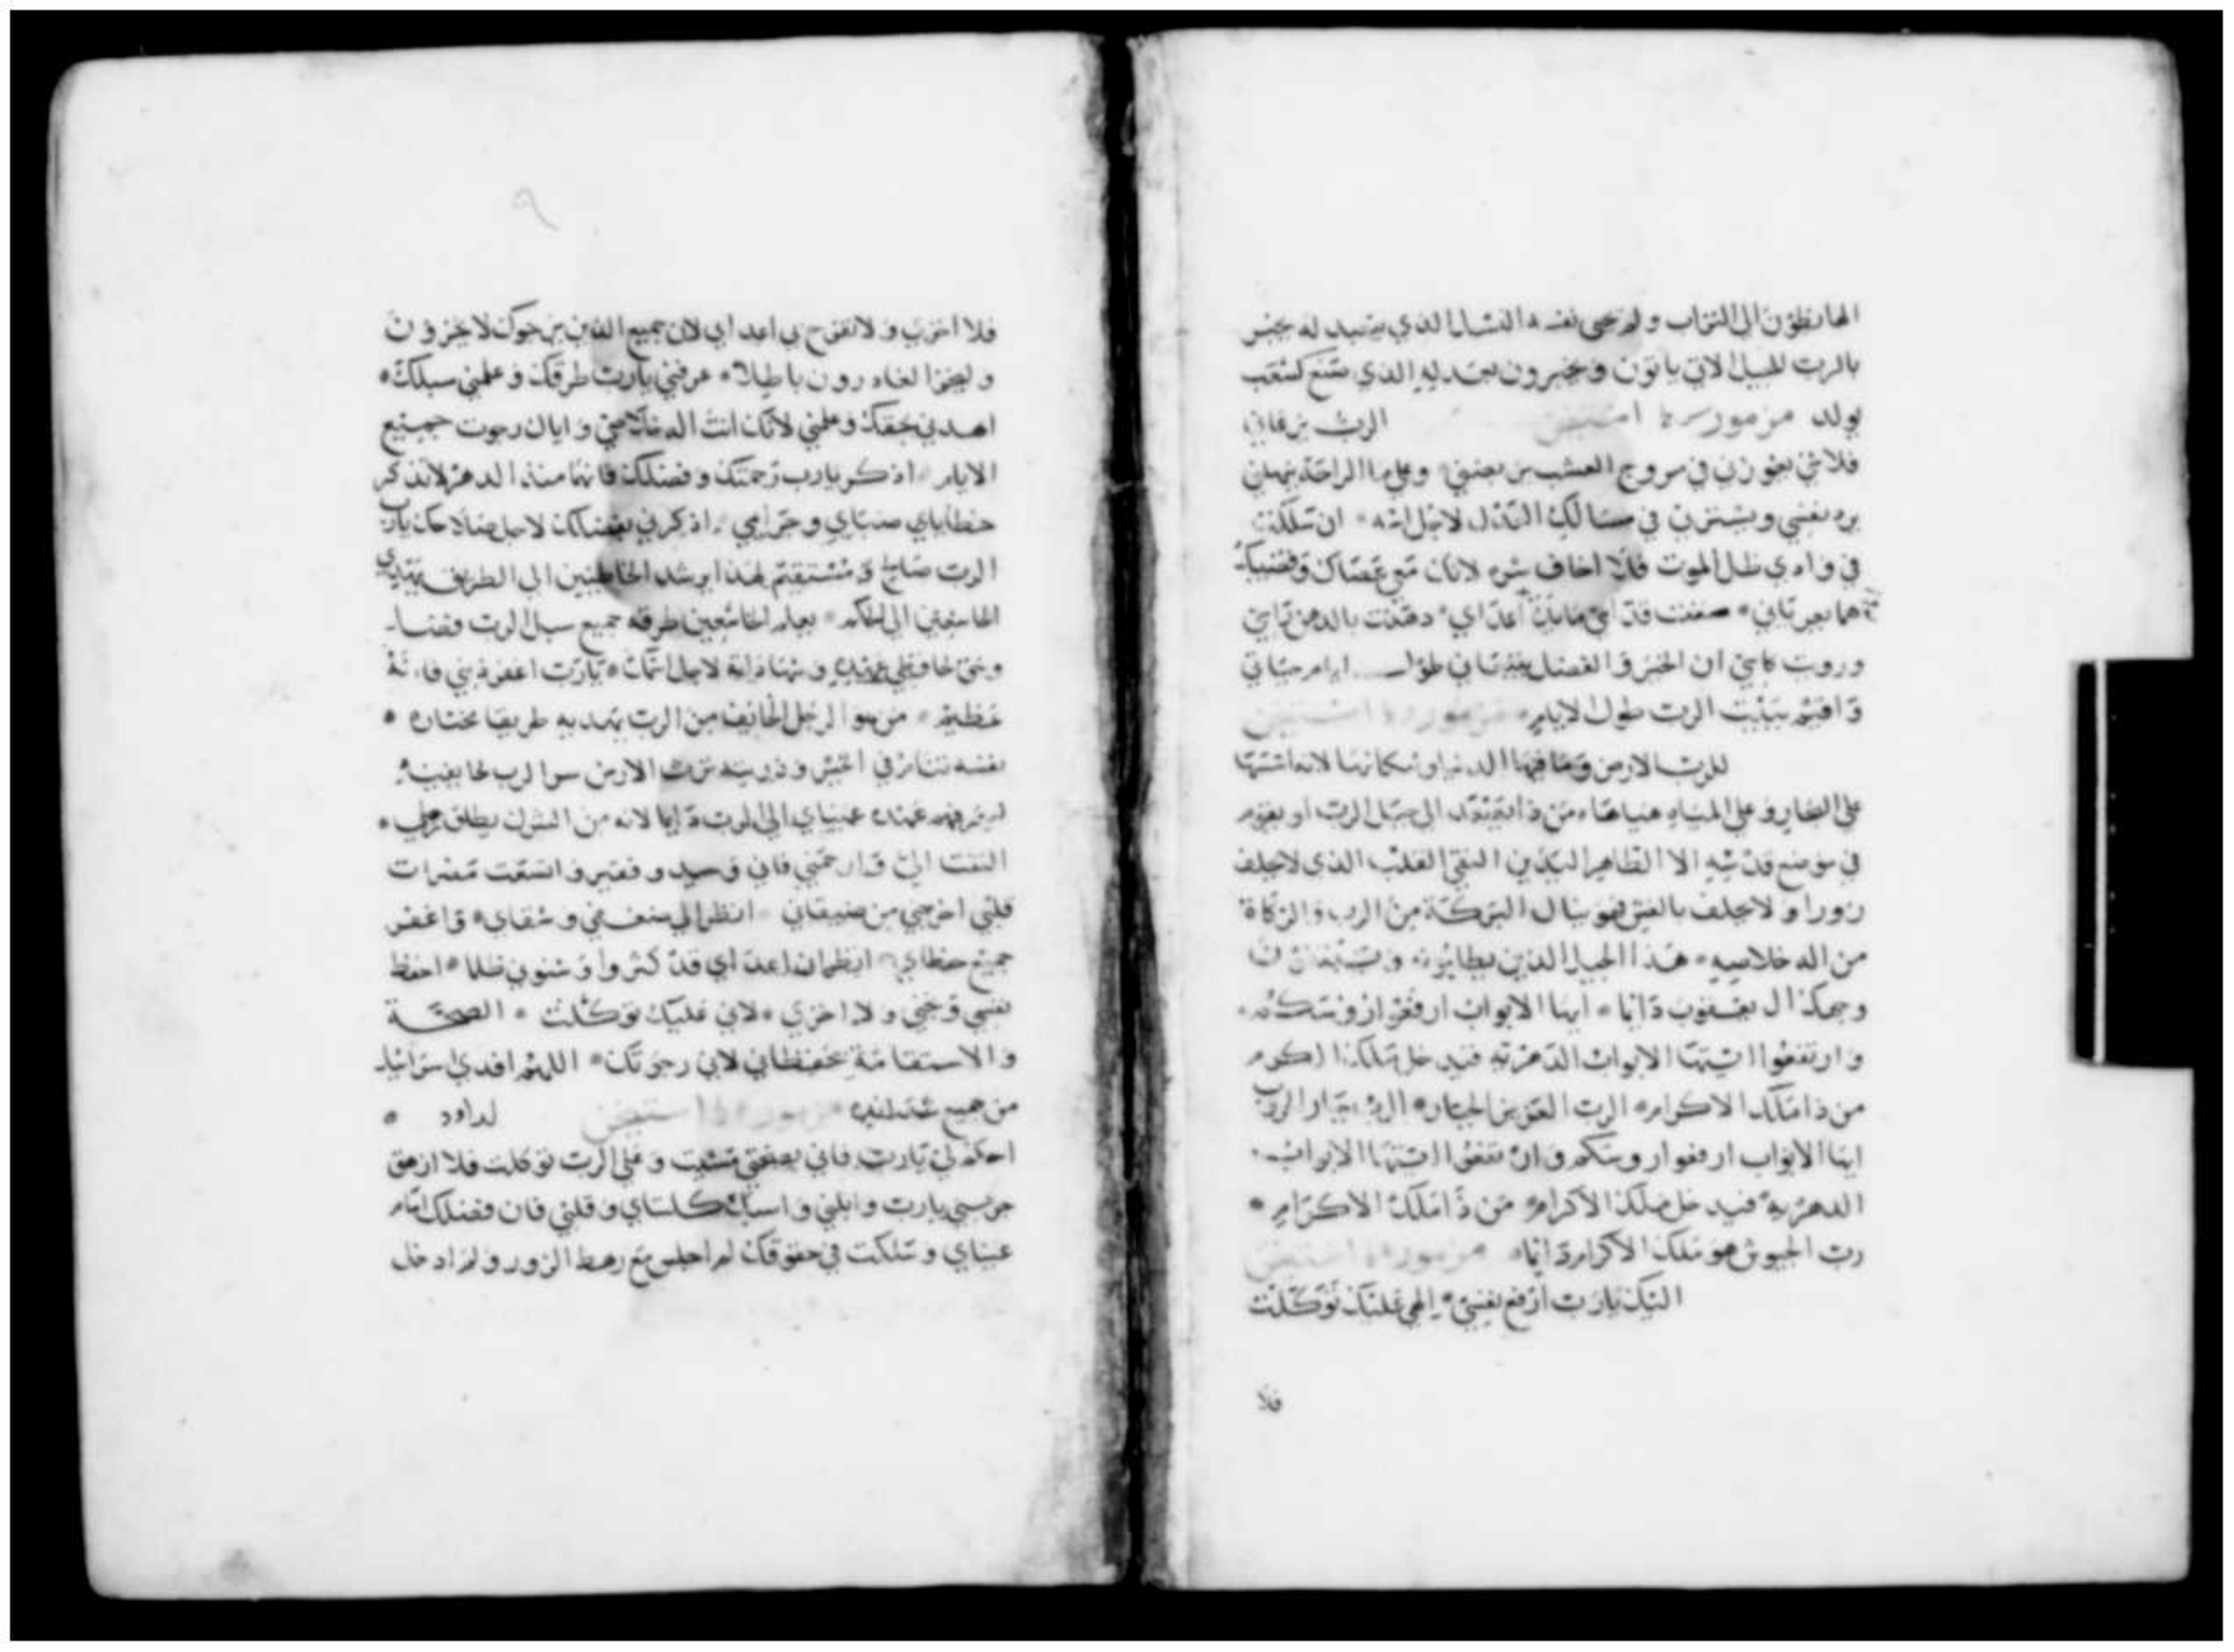 الهابطون الى التراب ولم تحيى نفسه النسل الذي يتعبد له يخبر
بالرب للجيل الاتي ياتون ويخبرون بعدله الذي صنع كشعب
يولد مزمور استيخن الرب يرعاني
فلا شي يعوزني في مروج العشب يربضني وعلى ما الراحة يهديني
يرد نفسي ويسيرني في مسالك العدل لاجل اسمه ان سلكت
في وادي ظل الموت فلا اخاف شره لانك معي عصاك وقضيبك
هما يعزياني صففت قدامي مايدة اعداي دهنت بالدهن راسي
وروت كاسي ان الخير والفضل يتبعاني طول ايام حياتي
واقيم ببيت الرب طول الايام مزمور
للرب الارض وما فيها الدنيا وسكانها لانه اسسها
على البحار وعلى المياه هياها من ذا يصعد الى جبل الرب او يقوم
في موضع قدسه الا الطاهر اليدين النقي القلب الذي لا يحلف
زورا ولا يحلف بالغش فهو ينال البركة من الرب والزكاة
من اله خلاصه هذا الجيل الذين يطلبونه ويبتغون
وجهك ال يعقوب دايما ايها الابواب ارفعوا روسكم
وارتفعوا ايتها الابواب الدهرية فيدخل ملك الاكرام
من ذا ملك الاكرام الرب العزيز الجبار الرب جبار الحرب
ايها الابواب ارفعوا روسكم وارتفعوا ايتها الابواب
الدهرية فيدخل ملك الاكرام من ذا ملك الاكرام
رب الجيوش هو ملك الاكرام دايما مزمور
اليك يارب ارفع نفسي الهي عليك توكلت
فلا
٩
فلا اخزى ولا تفرح بي اعداي لان جميع الذين يرجوك لا يخزون
وليخزا الغادرون باطلا عرفني يارب طرقك وعلمني سبلك
اهدني بحقك وعلمني لانك انت اله خلاصي واياك رجوت جميع
الايام اذكر يارب رحمتك وفضلك فانهما منذ الدهر لا تذكر
خطاياي صباي وجرايمي اذكرني بفضلك لاجل صلاحك يارب
الرب صالح ومستقيم لهذا يرشد الخاطيين الى الطريق يهدي
الخاشعين الى الحكم يعلم الخاشعين طرقه جميع سبل الرب فضل
وحق لحافظي عهده وشهاداته لاجل اسمك يارب اغفر ذنبي فانه
عظيم من هو الرجل الخايف من الرب يهديه طريقا يختاره
نفسه تنام في الخير وذريته ترث الارض سر الرب لخايفيه
ليعرفهم عهده عيناي الى الرب دايما لانه من الشرك يطلق رجلي
التفت الي وارحمني فاني وحيد وفقير واتسعت مضرات
قلبي اخرجني من ضيقاتي انظر الى ضعفي وشقاي واغفر
جميع خطاي انظر ان اعداي قد كثروا وشنوني ظلما احفظ
نفسي ونجني ولا اخزى لاني عليك توكلت الصحة
والاستقامة يحفظاني لاني رجوتك اللهم افدي اسرائيل
من جميع شدايده مزمور لداود
احكم لي يارب فاني بصحتي مشيت وعلى الرب توكلت فلا ازهق
جربني يارب وابلني واسبك كلتاي وقلبي فان فضلك امام
عيناي وسلكت في حقوقك لم اجلس مع رهط الزور ولم ادخل